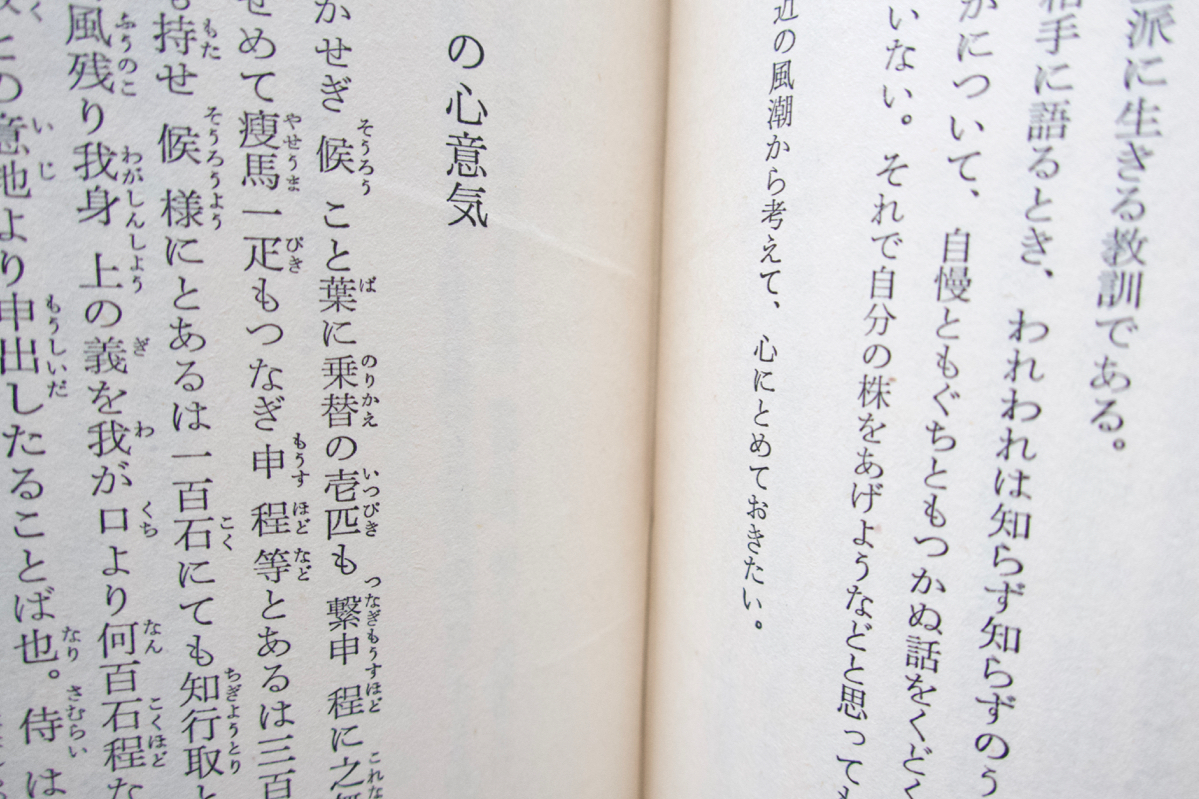 派に生きる教訓である。
相手に語るとき、われわれは知らず知らずのう
かについて、自慢ともぐちともつかぬ話をくどく
いない。それで自分の株をあげようなどと思っても
辺の風潮から考えて、心にとめておきたい。
の心意気
かせぎ候こと葉に乗替の壱匹も繋申程に之
せめて瘦馬一疋もつなぎ申程等とあるは三百
持せ候様にとあるは一百石にても知行取と
風残り我身上の義を我が口より何百石程な
この意地より申出したることば也。侍は